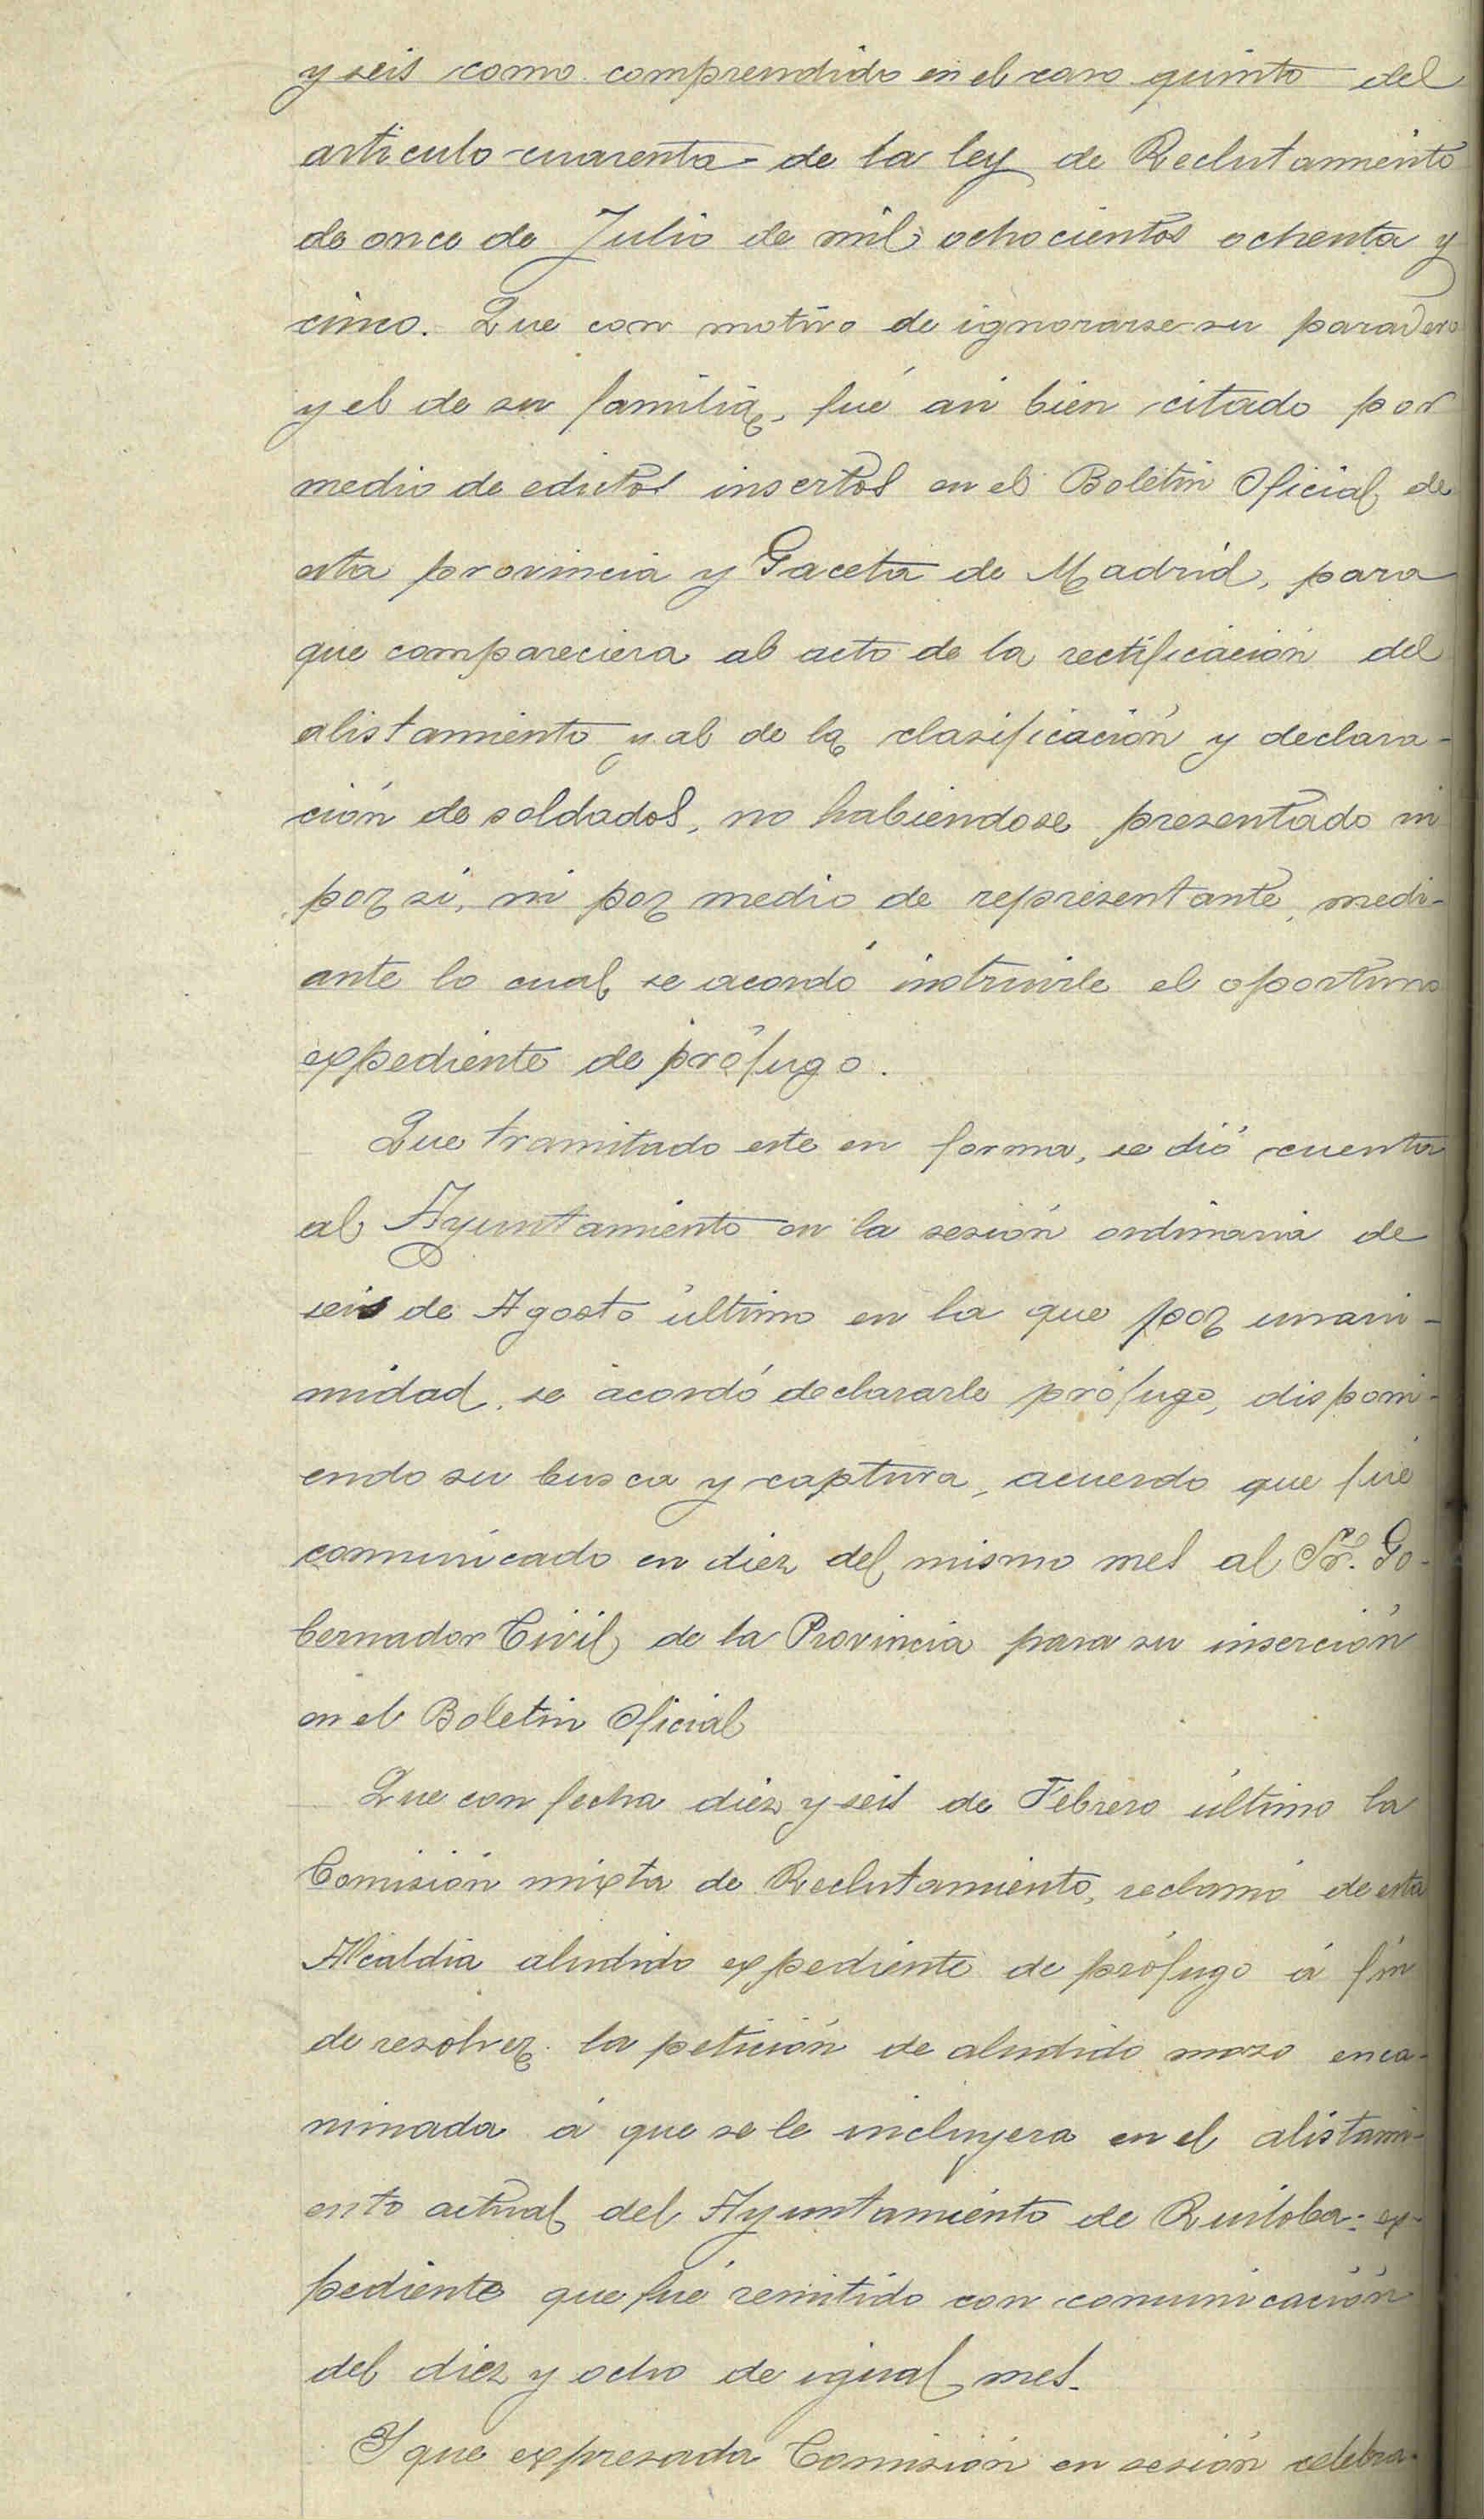 y seis como comprendido en el caso quinto del
articulo cuarenta de la ley de Reclutamiento
de once de Julio de mil ochocientos ochenta y
cinco. Que con motivo de ignorarse su paradero
y el de su familia, fué asi bien citado por
medio de edictos insertos en el Boletin Oficial de
esta provincia y Gaceta de Madrid, para
que compareciera al acto de la rectificación del
alistamiento y al de la clasificación y declara-
ción de soldados, no habiendose presentado ni
por si, ni por medio de representante, medi-
ante lo cual se acordó instruirle el oportuno
expediente de prófugo.
Que tramitado este en forma, se dió cuenta
al Ayuntamiento en la sesión ordinaria de
seis de Agosto último en la que por unani-
midad, se acordó declararle prófugo, disponi-
endo su busca y captura, acuerdo que fué
comunicado en diez del mismo mes al Sr. Go-
bernador Civil de la Provincia para su inserción
en el Boletin Oficial
Que con fecha diez y seis de Febrero último la
Comisión mixta de Reclutamiento, reclamó de esta
Alcaldia aludido expediente de prófugo á fin
de resolver la petición de aludido mozo enca-
minada á que se le incluyera en el alistami-
ento actual del Ayuntamiento de Ruiloba: ex-
pediente que fué remitido con comunicación
del diez y ocho de igual mes.
Y que expresada Comisión en sesión celebra-